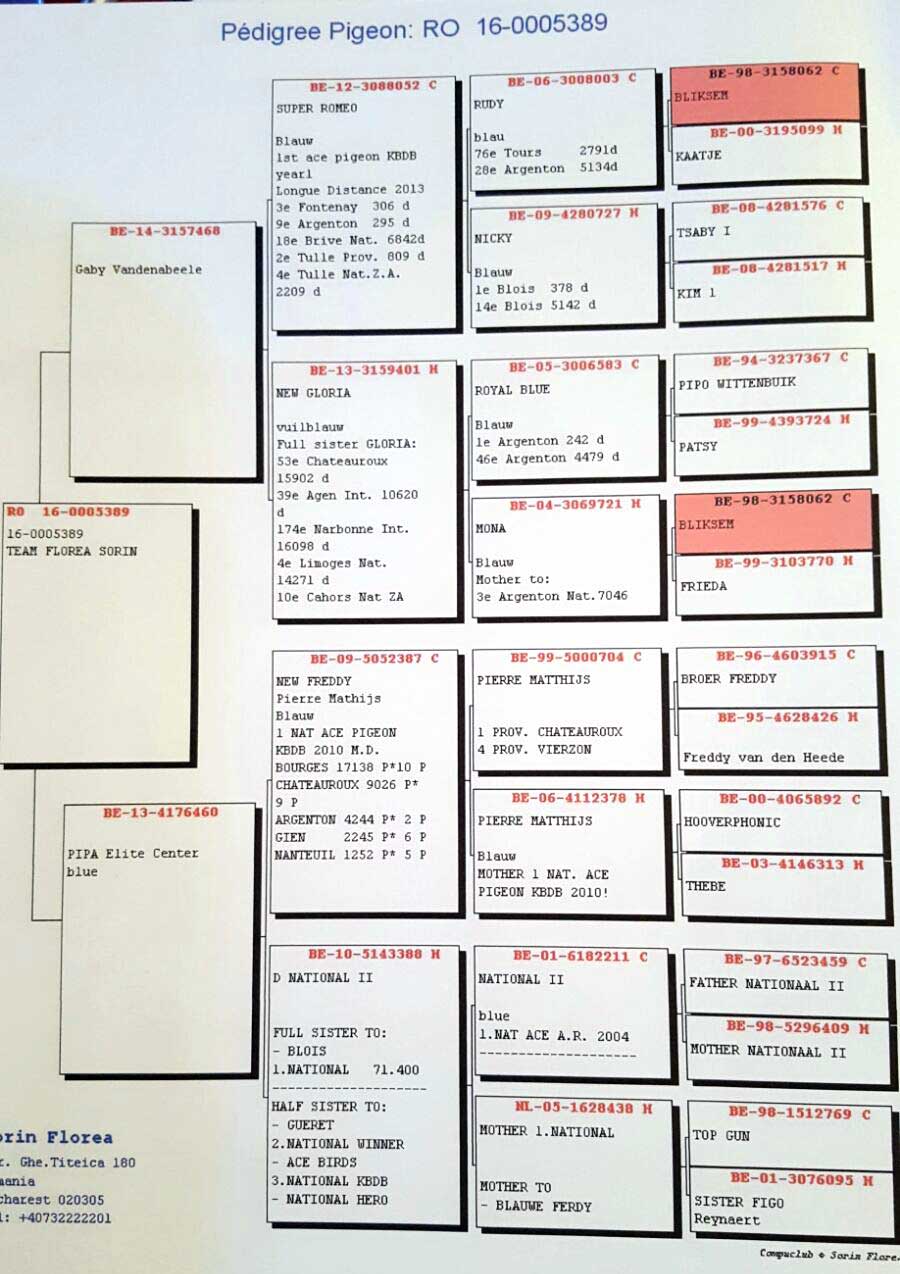 Pédigree Pigeon: RO 16-0005389
RO 16-0005389
16-0005389
TEAM FLOREA SORIN
BE-14-3157468
Gaby Vandenabeele
BE-13-4176460
PIPA Elite Center
blue
BE-12-3088052 C
SUPER ROMEO
Blauw
1st ace pigeon KBDB
yearl
Longue Distance 2013
3e Fontenay 306 d
9e Argenton 295 d
18e Brive Nat. 6842d
2e Tulle Prov. 809 d
4e Tulle Nat.Z.A.
2209 d
BE-13-3159401 H
NEW GLORIA
vuilblauw
Full sister GLORIA:
53e Chateauroux
15902 d
39e Agen Int. 10620
d
174e Narbonne Int.
16098 d
4e Limoges Nat.
14271 d
10e Cahors Nat ZA
BE-09-5052387 C
NEW FREDDY
Pierre Mathijs
Blauw
1 NAT ACE PIGEON
KBDB 2010 M.D.
BOURGES 17138 P*10 P
CHATEAUROUX 9026 P*
9 P
ARGENTON 4244 P* 2 P
GIEN 2245 P* 6 P
NANTEUIL 1252 P* 5 P
BE-10-5143388 H
D NATIONAL II
FULL SISTER TO:
- BLOIS
1.NATIONAL 71.400
--------------------
HALF SISTER TO:
- GUERET
2.NATIONAL WINNER
- ACE BIRDS
3.NATIONAL KBDB
- NATIONAL HERO
BE-06-3008003 C
RUDY
blau
76e Tours 2791d
28e Argenton 5134d
BE-09-4280727 H
NICKY
Blauw
1e Blois 378 d
14e Blois 5142 d
BE-05-3006583 C
ROYAL BLUE
Blauw
1e Argenton 242 d
46e Argenton 4479 d
BE-04-3069721 H
MONA
Blauw
Mother to:
3e Argenton Nat.7046
BE-99-5000704 C
PIERRE MATTHIJS
1 PROV. CHATEAUROUX
4 PROV. VIERZON
BE-06-4112378 H
PIERRE MATTHIJS
Blauw
MOTHER 1 NAT. ACE
PIGEON KBDB 2010!
BE-01-6182211 C
NATIONAL II
blue
1.NAT ACE A.R. 2004
--------------------
NL-05-1628438 H
MOTHER 1.NATIONAL
MOTHER TO
- BLAUWE FERDY
BE-98-3158062 C
BLIKSEM
BE-00-3195099 H
KAATJE
BE-08-4281576 C
TSABY I
BE-08-4281517 H
KIM 1
BE-94-3237367 C
PIPO WITTENBUIK
BE-99-4393724 H
PATSY
BE-98-3158062 C
BLIKSEM
BE-99-3103770 H
FRIEDA
BE-96-4603915 C
BROER FREDDY
BE-95-4628426 H
Freddy van den Heede
BE-00-4065892 C
HOOVERPHONIC
BE-03-4146313 H
THEBE
BE-97-6523459 C
FATHER NATIONAAL II
BE-98-5296409 H
MOTHER NATIONAAL II
BE-98-1512769 C
TOP GUN
BE-01-3076095 H
SISTER FIGO
Reynaert
orin Florea
r. Ghe.Titeica 180
mania
charest 020305
l: +40732222201
Compuclub © Sorin Flore